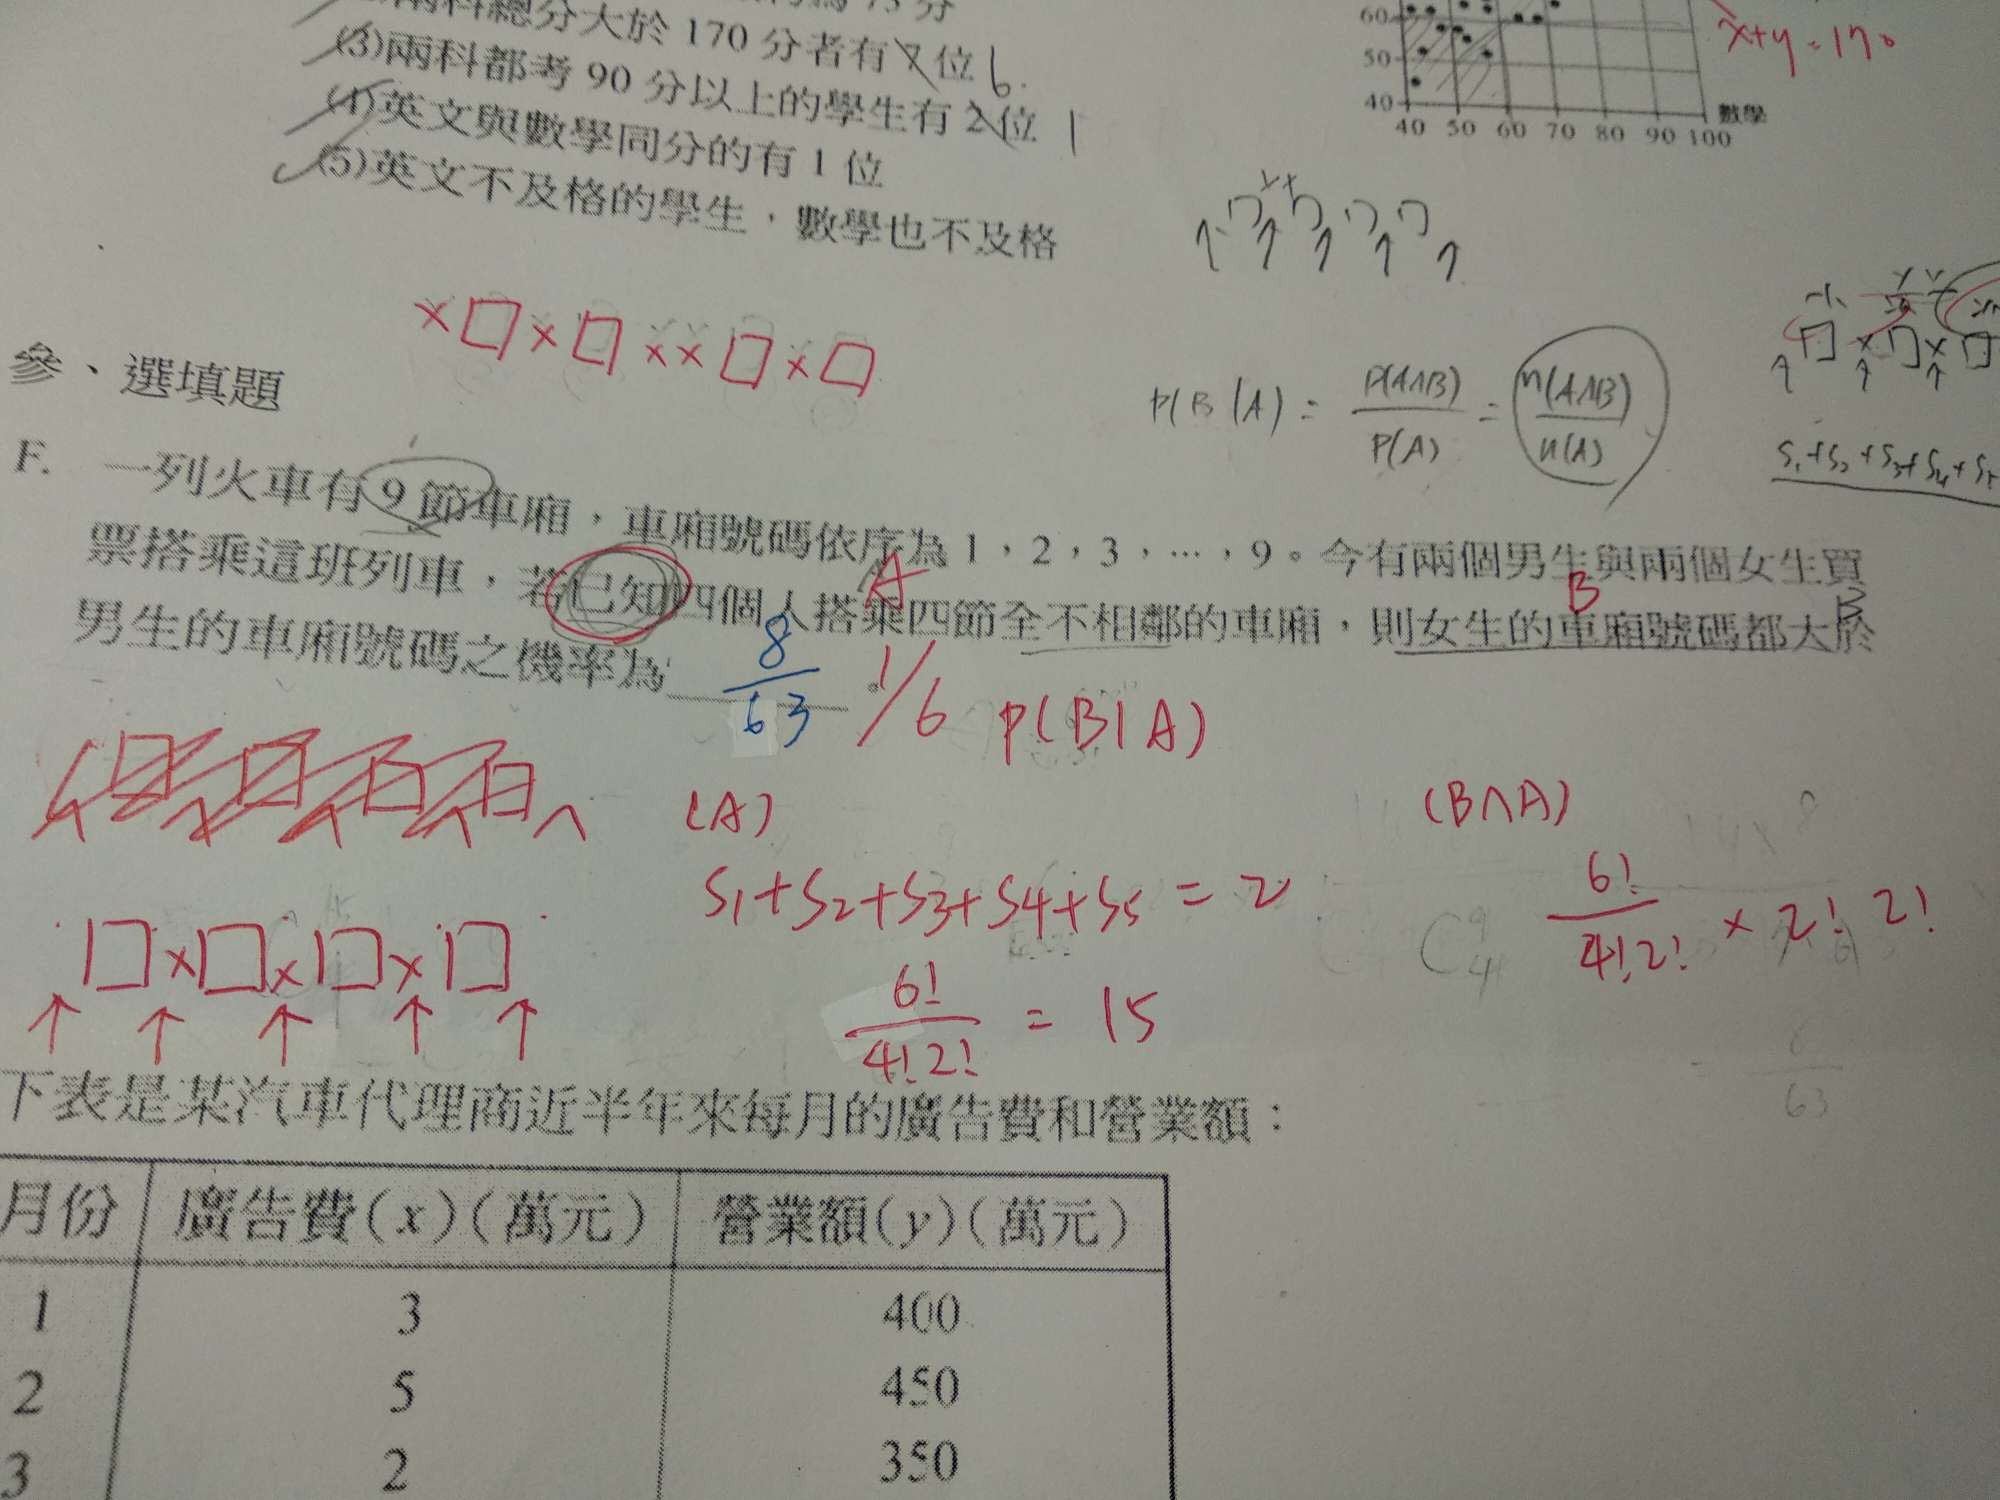 兩科總分大於 170 分者有 7 位 6.
(3)兩科都考 90 分以上的學生有 2 位 1
(4)英文與數學同分的有 1 位
(5)英文不及格的學生，數學也不及格
60
50
40
40 50 60 70 80 90 100
數學
x+y=170
×□×□××□×□
參、選填題
P(B|A) = P(A∩B)/P(A) = n(A∩B)/n(A)
S₁+S₂+S₃+S₄+S₅
F. 一列火車有 9 節車廂，車廂號碼依序為 1，2，3，…，9。今有兩個男生與兩個女生買
票搭乘這班列車，若已知四個人搭乘四節全不相鄰的車廂，則女生的車廂號碼都大於
男生的車廂號碼之機率為 8/63 。 1/6
A
B
B
P(B|A)
(A)
(B∩A)
S₁+S₂+S₃+S₄+S₅ = 2
6!/4!2! × 2! 2!
□×□×□×□
6!/4!2! = 15
C⁹₄
6/63
下表是某汽車代理商近半年來每月的廣告費和營業額：
月份 廣告費(x)(萬元) 營業額(y)(萬元)
1 3 400
2 5 450
3 2 350